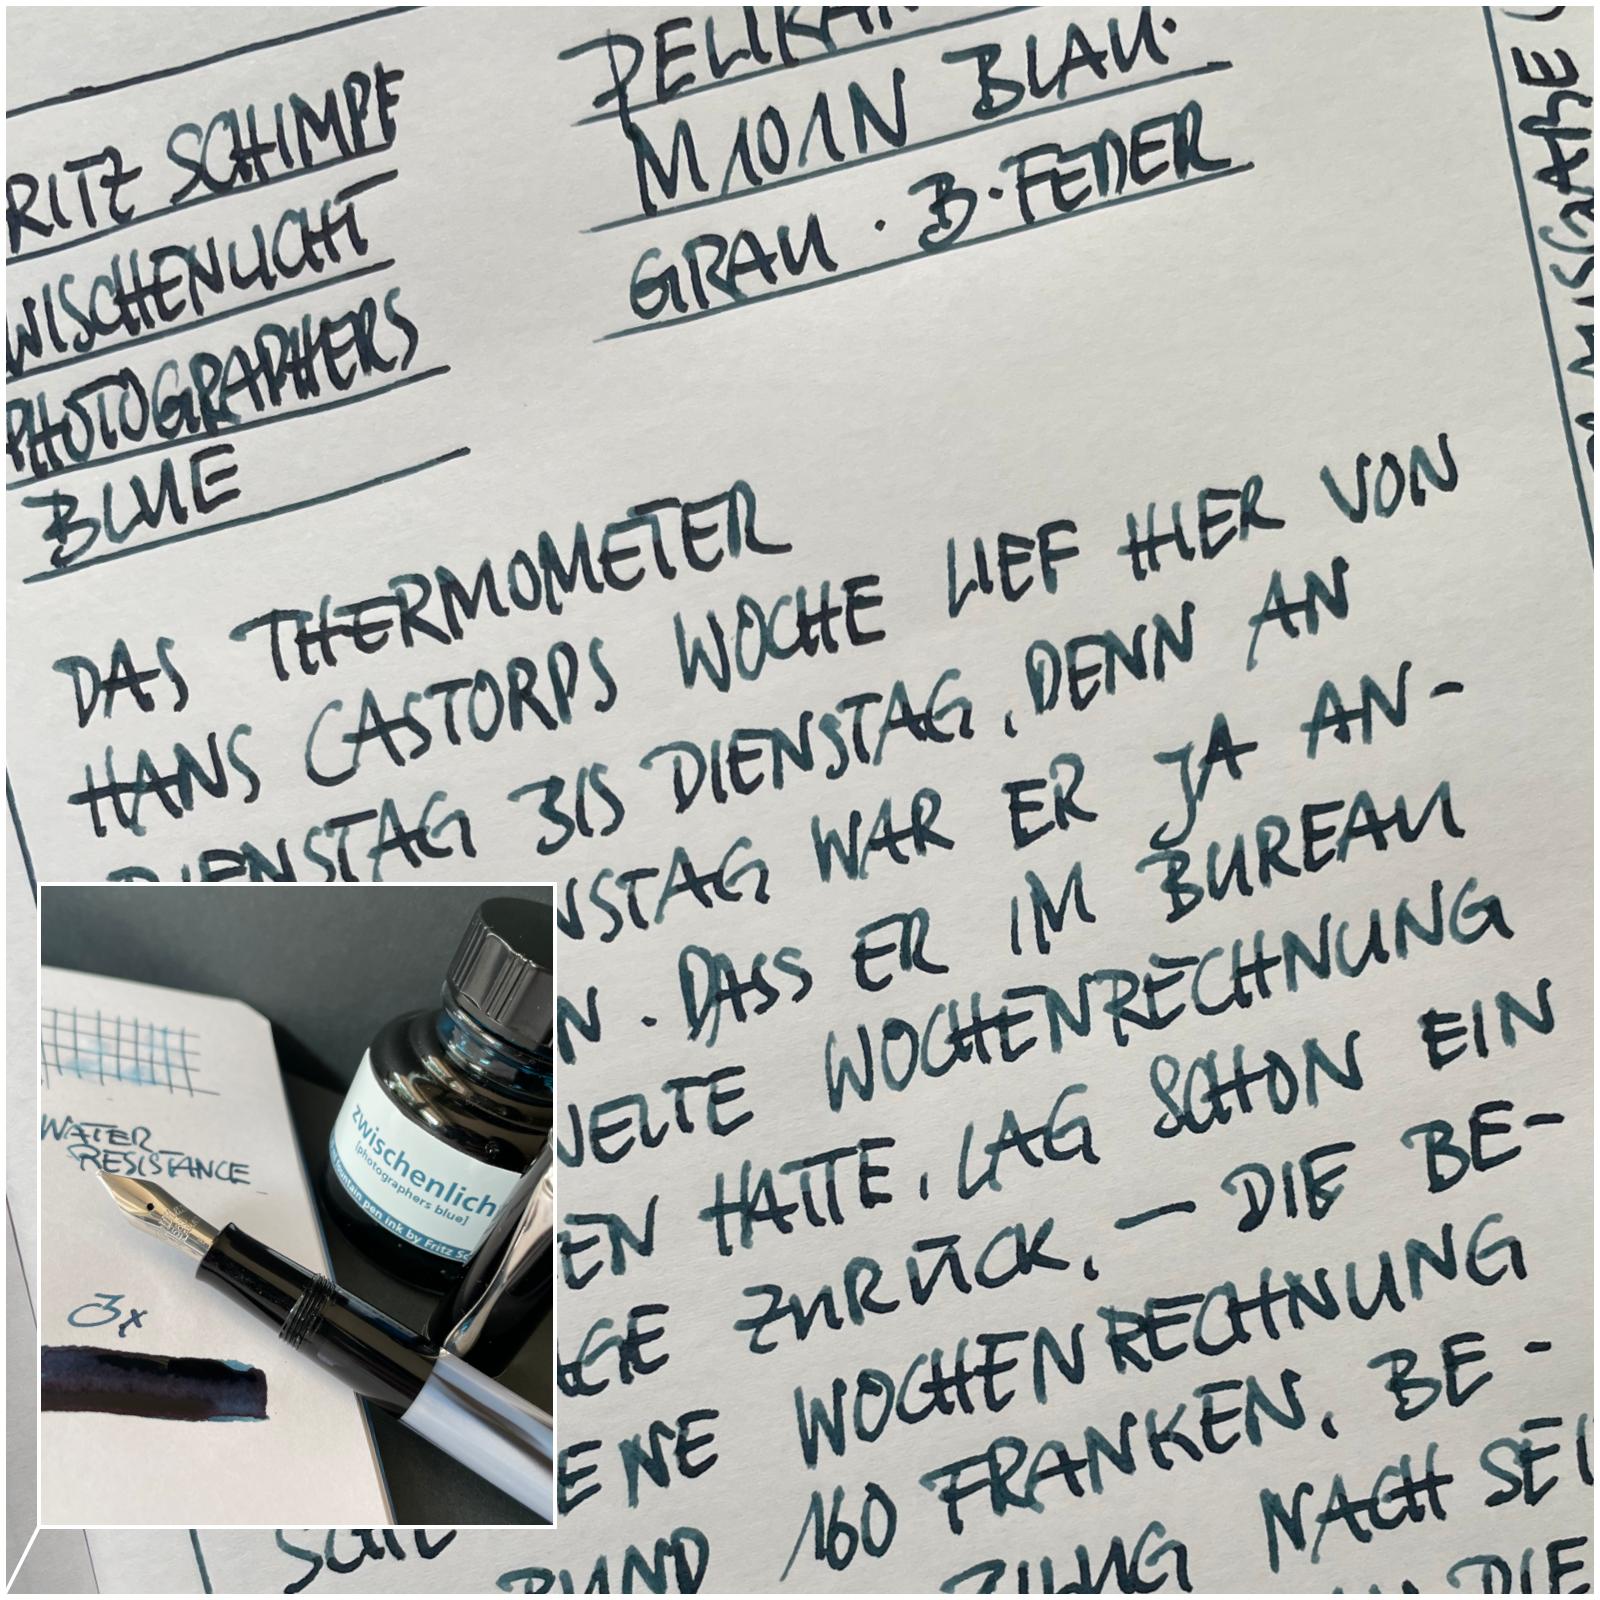 RITZ SCHIMPF
WISCHENLICHT
PHOTOGRAPHERS
BLUE
PELIKAN
M101N BLAU.
GRAU · B·FEDER
DAS THERMOMETER
HANS CASTORPS WOCHE LIEF HIER VON
DIENSTAG BIS DIENSTAG, DENN AN
NSTAG WAR ER JA AN-
N. DASS ER IM BUREAU
WOCHENRECHNUNG
EN HATTE, LAG SCHON EIN
GE ZURÜCK, — DIE BE-
ENE WOCHENRECHNUNG
160 FRANKEN, BE-
NACH SEI
DIE
WATER
RESISTANCE
3x
Zwischenlich
[photographers blue]
fountain pen ink by Fritz Sc